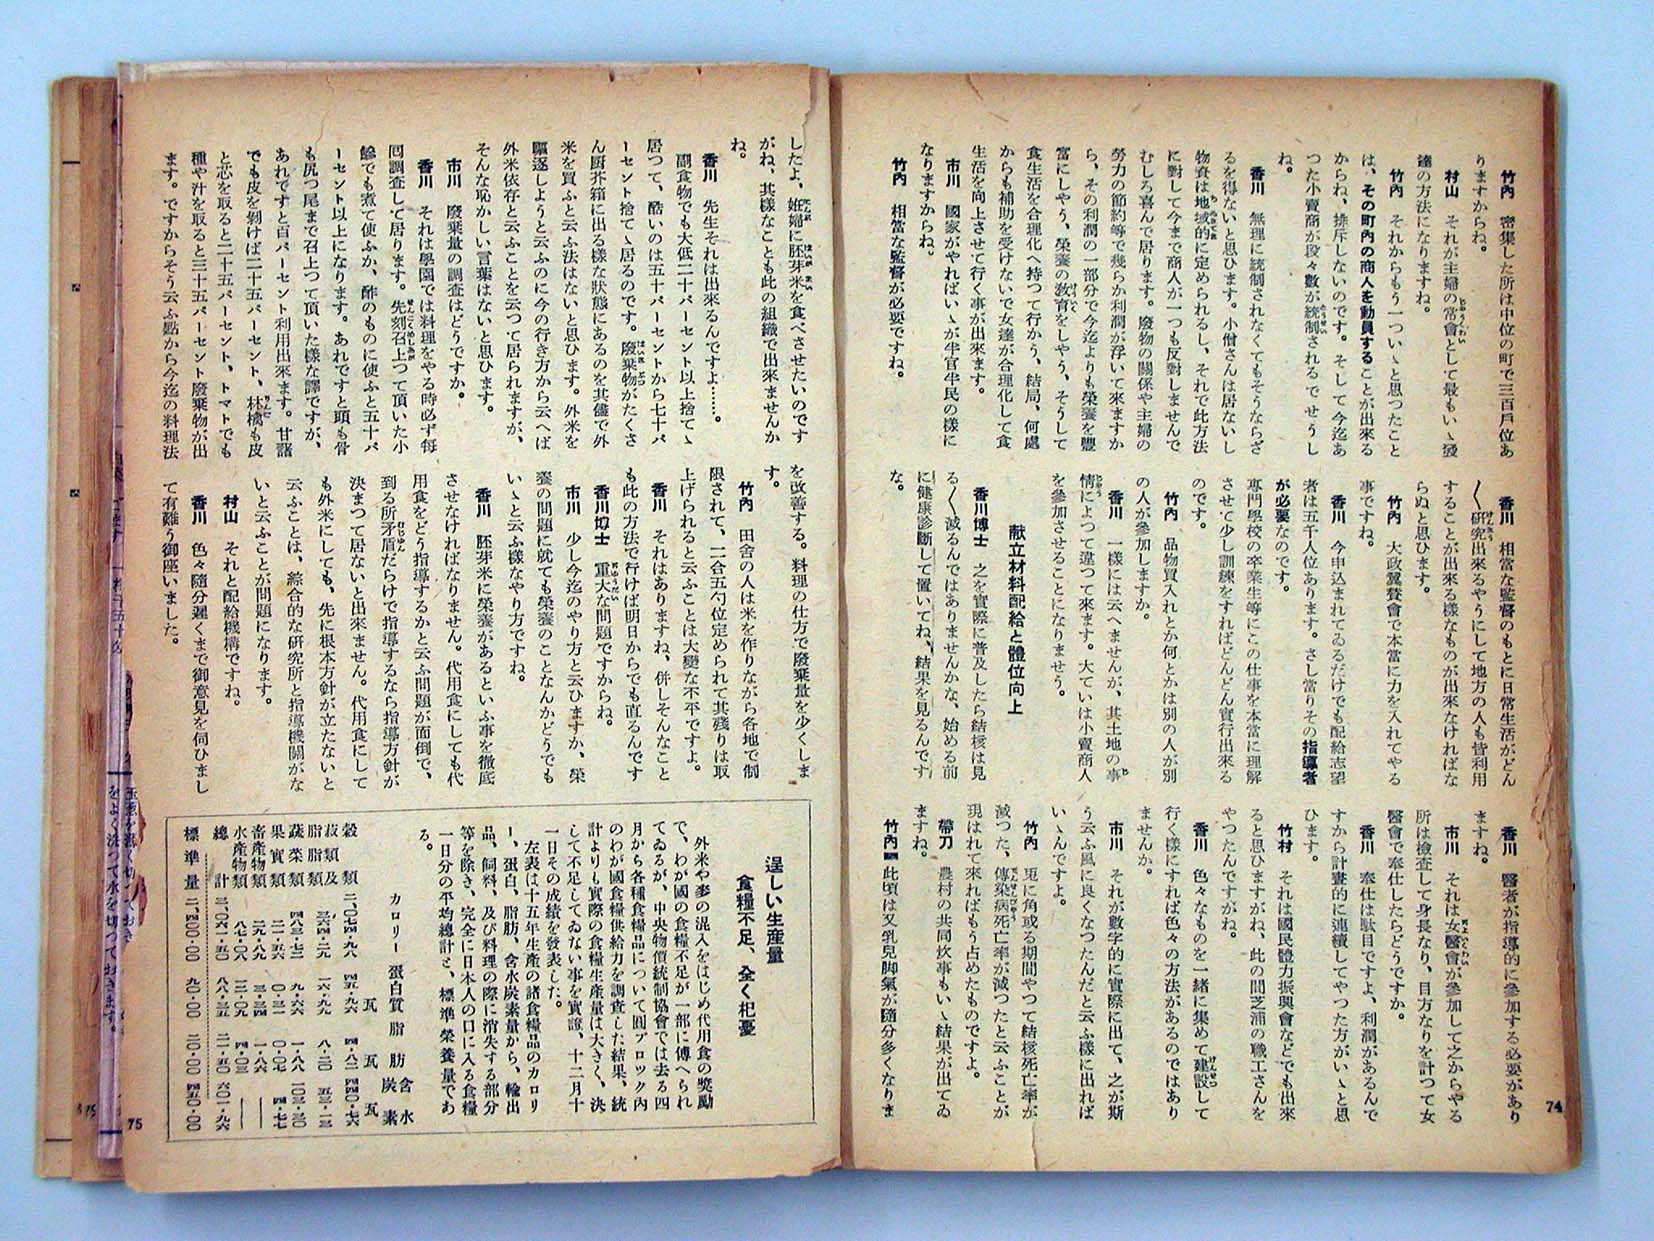 竹内　密集した所は中位の町で三百戶位あ
りますからね。
村山　それが主婦の常會として最もいゝ發
達の方法になりますね。
竹內　それからもう一ついゝと思つたこと
は、その町內の商人を動員することが出來る
からね、排斥しないのです。そして今迄あ
つた小賣商が段々數が統制されるでせうし
ね。
香川　無理に統制されなくてもそうならざ
るを得ないと思ひます。小僧さんは居ないし
物資は地域的に定められるし、それで此方法
に對して今まで商人が一つも反對しませんで
むしろ喜んで居ります。廢物の關係や主婦の
勞力の節約等で幾らか利潤が浮いて來ますか
ら、その利潤の一部分で今迄よりも榮養を豐
富にしやう、榮養の敎育をしやう、そうして
食生活を合理化へ持つて行かう、結局、何處
からも補助を受けないで女達が合理化して食
生活を向上させて行く事が出來ます。
市川　國家がやればいゝが半官半民の樣に
なりますからね。
竹內　相當な監督が必要ですね。
香川　相當な監督のもとに日常生活がどん
〱研究出來るやうにして地方の人も皆利用
することが出來る樣なものが出來なければな
らぬと思ひます。
竹內　大政翼贊會で本當に力を入れてやる
事ですね。
香川　今申込まれてゐるだけでも配給志望
者は五千人位あります。さし當りその指導者
が必要なのです。
專門學校の卒業生等にこの仕事を本當に理解
させて少し訓練をすればどんどん實行出來る
のです。
竹內　品物買入れとか何とかは別の人が別
の人が參加しますか。
香川　一樣には云へませんが、其土地の事
情によつて違つて來ます。大ていは小賣商人
を參加させることになりませう。
獻立材料配給と體位向上
香川博士　之を實際に普及したら結核は見
る〱減るんではありませんかな、始める前
に健康診斷して置いてね、結果を見るんです
な。
香川　醫者が指導的に參加する必要があり
ますね。
市川　それは女醫會が參加して之からやる
所は檢査して身長なり、目方なりを計つて女
醫會で奉仕したらどうですか。
香川　奉仕は駄目ですよ、利潤があるんで
すから計畫的に連續してやつた方がいゝと思
ひます。
竹村　それは國民體力振興會などでも出來
ると思ひますがね、此の間芝浦の職工さんを
やつたんですがね。
香川　色々なものを一緖に集めて建設して
行く樣にすれば色々の方法があるのではあり
ませんか。
市川　それが數字的に實際に出て、之が斯
う云ふ風に良くなつたんだと云ふ樣に出れば
いゝんですよ。
竹內　兎に角或る期間やつて結核死亡率が
減つた、傳染病死亡率が減つたと云ふことが
現はれて來ればもう占めたものですよ。
帶刀　農村の共同炊事もいゝ結果が出てゐ
ますね。
竹內　此頃は又乳兒脚氣が隨分多くなりま
74
したよ、姙婦に胚芽米を食べさせたいのです
がね、其樣なことも此の組織で出來ませんか
ね。
香川　先生それは出來るんですよ……。
副食物でも大低二十パーセント以上捨てゝ
居つて、酷いのは五十パーセントから七十パ
ーセント捨てゝ居るのです。廢棄物がたくさ
ん厨芥箱に出る樣な狀態にあるのを其儘で外
米を買ふと云ふ法はないと思ひます。外米を
驅逐しようと云ふのに今の行き方から云へば
外米依存と云ふことを云つて居られますが、
そんな恥かしい言葉はないと思ひます。
市川　廢棄量の調査はどうですか。
香川　それは學園では料理をやる時必ず每
囘調査して居ります。先刻召上つて頂いた小
鯵でも煮て使ふか、酢のものに使ふと五十パ
ーセント以上になります。あれですと頭も骨
も尻つ尾まで召上つて頂いた樣な譯ですが、
あれですと百パーセント利用出來ます。甘藷
でも皮を剝げば二十五パーセント、林檎も皮
と芯を取ると二十五パーセント、トマトでも
種や汁を取ると三十五パーセント廢棄物が出
ます。ですからそう云ふ點から今迄の料理法
を改善する。料理の仕方で廢棄量を少くしま
す。
竹內　田舍の人は米を作りながら各地で制
限されて、二合五勺位定められて其殘りは取
上げられると云ふことは大變な不平ですよ。
香川　それはありますね、併しそんなこと
も此の方法で行けば明日からでも直るんです
香川博士　重大な問題ですからね。
市川　少し今迄のやり方と云ひますか、榮
養の問題に就ても榮養のことなんかどうでも
いゝと云ふ樣なやり方ですね。
香川　胚芽米に榮養があるといふ事を徹底
させなければなりません。代用食にしても代
用食をどう指導するかと云ふ問題が面倒で、
到る所矛盾だらけで指導するなら指導方針が
決まつて居ないと出來ません。代用食にして
も外米にしても、先に根本方針が立たないと
云ふことは、綜合的な硏究所と指導機關がな
いと云ふことが問題になります。
村山　それと配給機構ですね。
香川　色々隨分遲くまで御意見を伺ひまし
て有難う御座いました。
逞しい生産量
食糧不足、全く杞憂
外米や麥の混入をはじめ代用食の獎勵
で、わが國の食糧不足が一部に傳へられ
てゐるが、中央物價統制協會では去る四
月から各種食糧品について圓ブロック內
のわが國食糧供給力を調査した結果、統
計よりも實際の食糧生産量は大きく、決
して不足してゐない事を實證、十二月十
一日その成績を發表した。
左表は十五年生産の諸食糧品のカロリ
ー、蛋白、脂肪、含水炭素量から、輸出
品、飼料、及び料理の際に消失する部分
等を除き、完全に日本人の口に入る食糧
一日分の平均總計と、標準榮養量であ
る。
カロリー　蛋白質瓦　脂肪瓦　含水炭素瓦
穀類　二、〇七四・九八　四五・九六　四・八二　四四〇・七六
菽類及脂類　三六四・二九　二六・九九　八・二〇　五三・一三
蔬菜類　四八三・七三　九・六六　一・八八　一〇三・三〇
果實類　二一・五六　〇・三一　〇・〇七　四・七七
畜產物類　二九・八九　三・三四　一・八六　——
水產物類　八七・〇八　三一・〇九　四・〇三　——
總計　三、〇六一・五三　八八・三五　二一・五〇　六〇一・九六
標準量　二、四〇〇・〇〇　九〇・〇〇　二〇・〇〇　四五〇・〇〇
75
玉葱を薄く切つておき
をよく洗つて水を切つておきます。